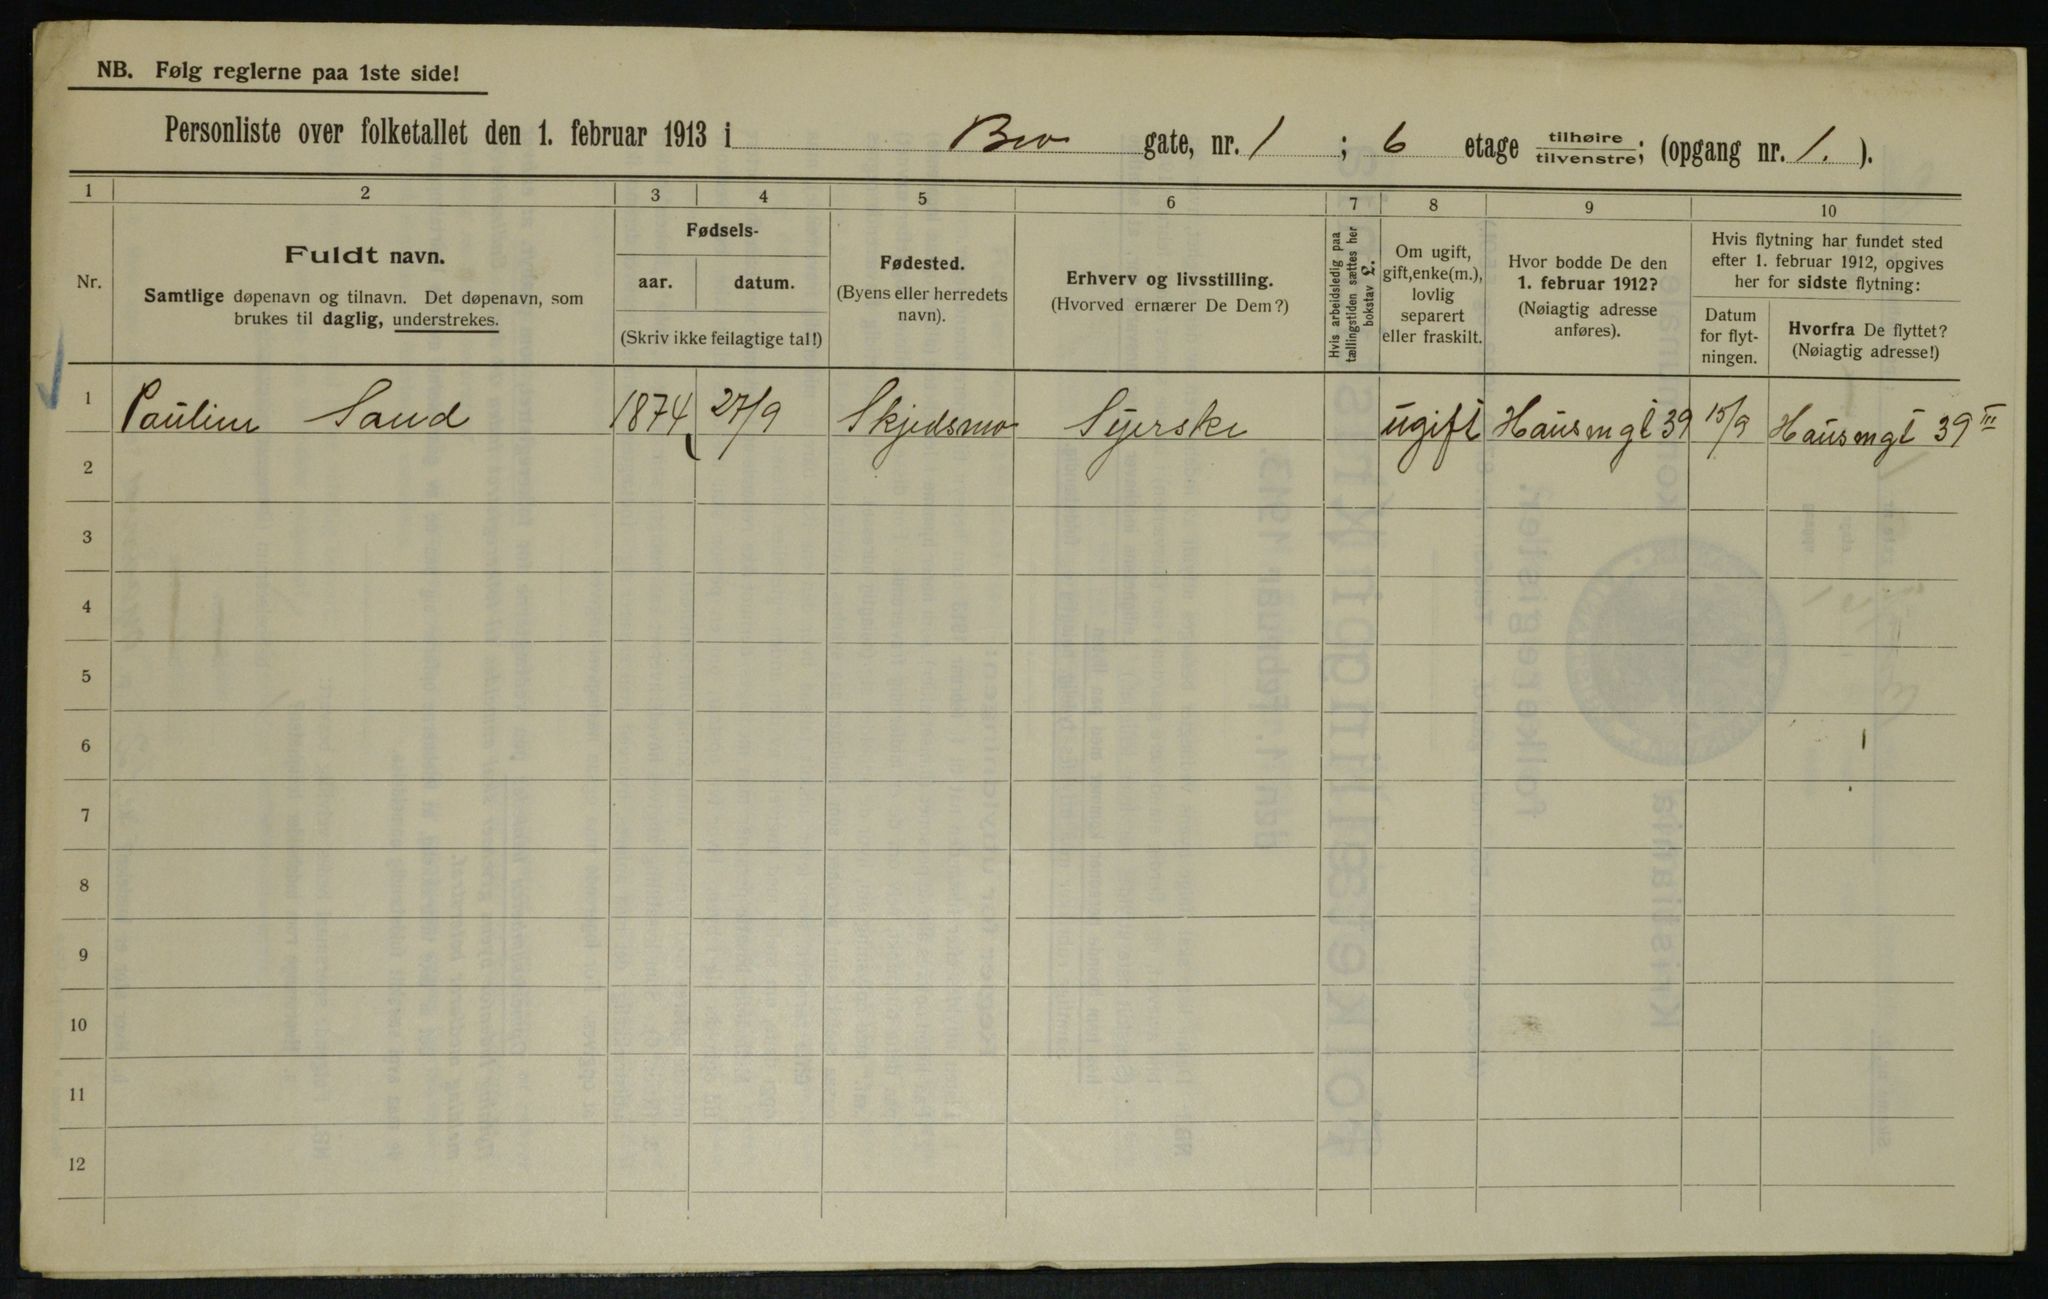 NB. Følg reglerne paa 1ste side!
Personliste over folketallet den 1. februar 1913 i Bro gate, nr. 1 ; 6 etage tilhøire/tilvenstre; (opgang nr. 1. ).
1 2 3 4 5 6 7 8 9 10
Nr.
Fuldt navn.
Samtlige døpenavn og tilnavn. Det døpenavn, som
brukes til daglig, understrekes.
Fødsels-
aar. datum.
(Skriv ikke feilagtige tal!)
Fødested.
(Byens eller herredets
navn).
Erhverv og livsstilling.
(Hvorved ernærer De Dem?)
Hvis arbeidsledig paa
tællingstiden sættes her
bokstav £.
Om ugift,
gift, enke(m.),
lovlig
separert
eller fraskilt.
Hvor bodde De den
1. februar 1912?
(Nøiagtig adresse
anføres).
Hvis flytning har fundet sted
efter 1. februar 1912, opgives
her for sidste flytning:
Datum
for flyt-
ningen.
Hvorfra De flyttet?
(Nøiagtig adresse!)
1 Pauline Sand 1874 27/9 Skjedsmo Syerske ugift Hausmgt 39 15/9 Hausmgt 39 III
2
3
4
5
6
7
8
9
10
11
12